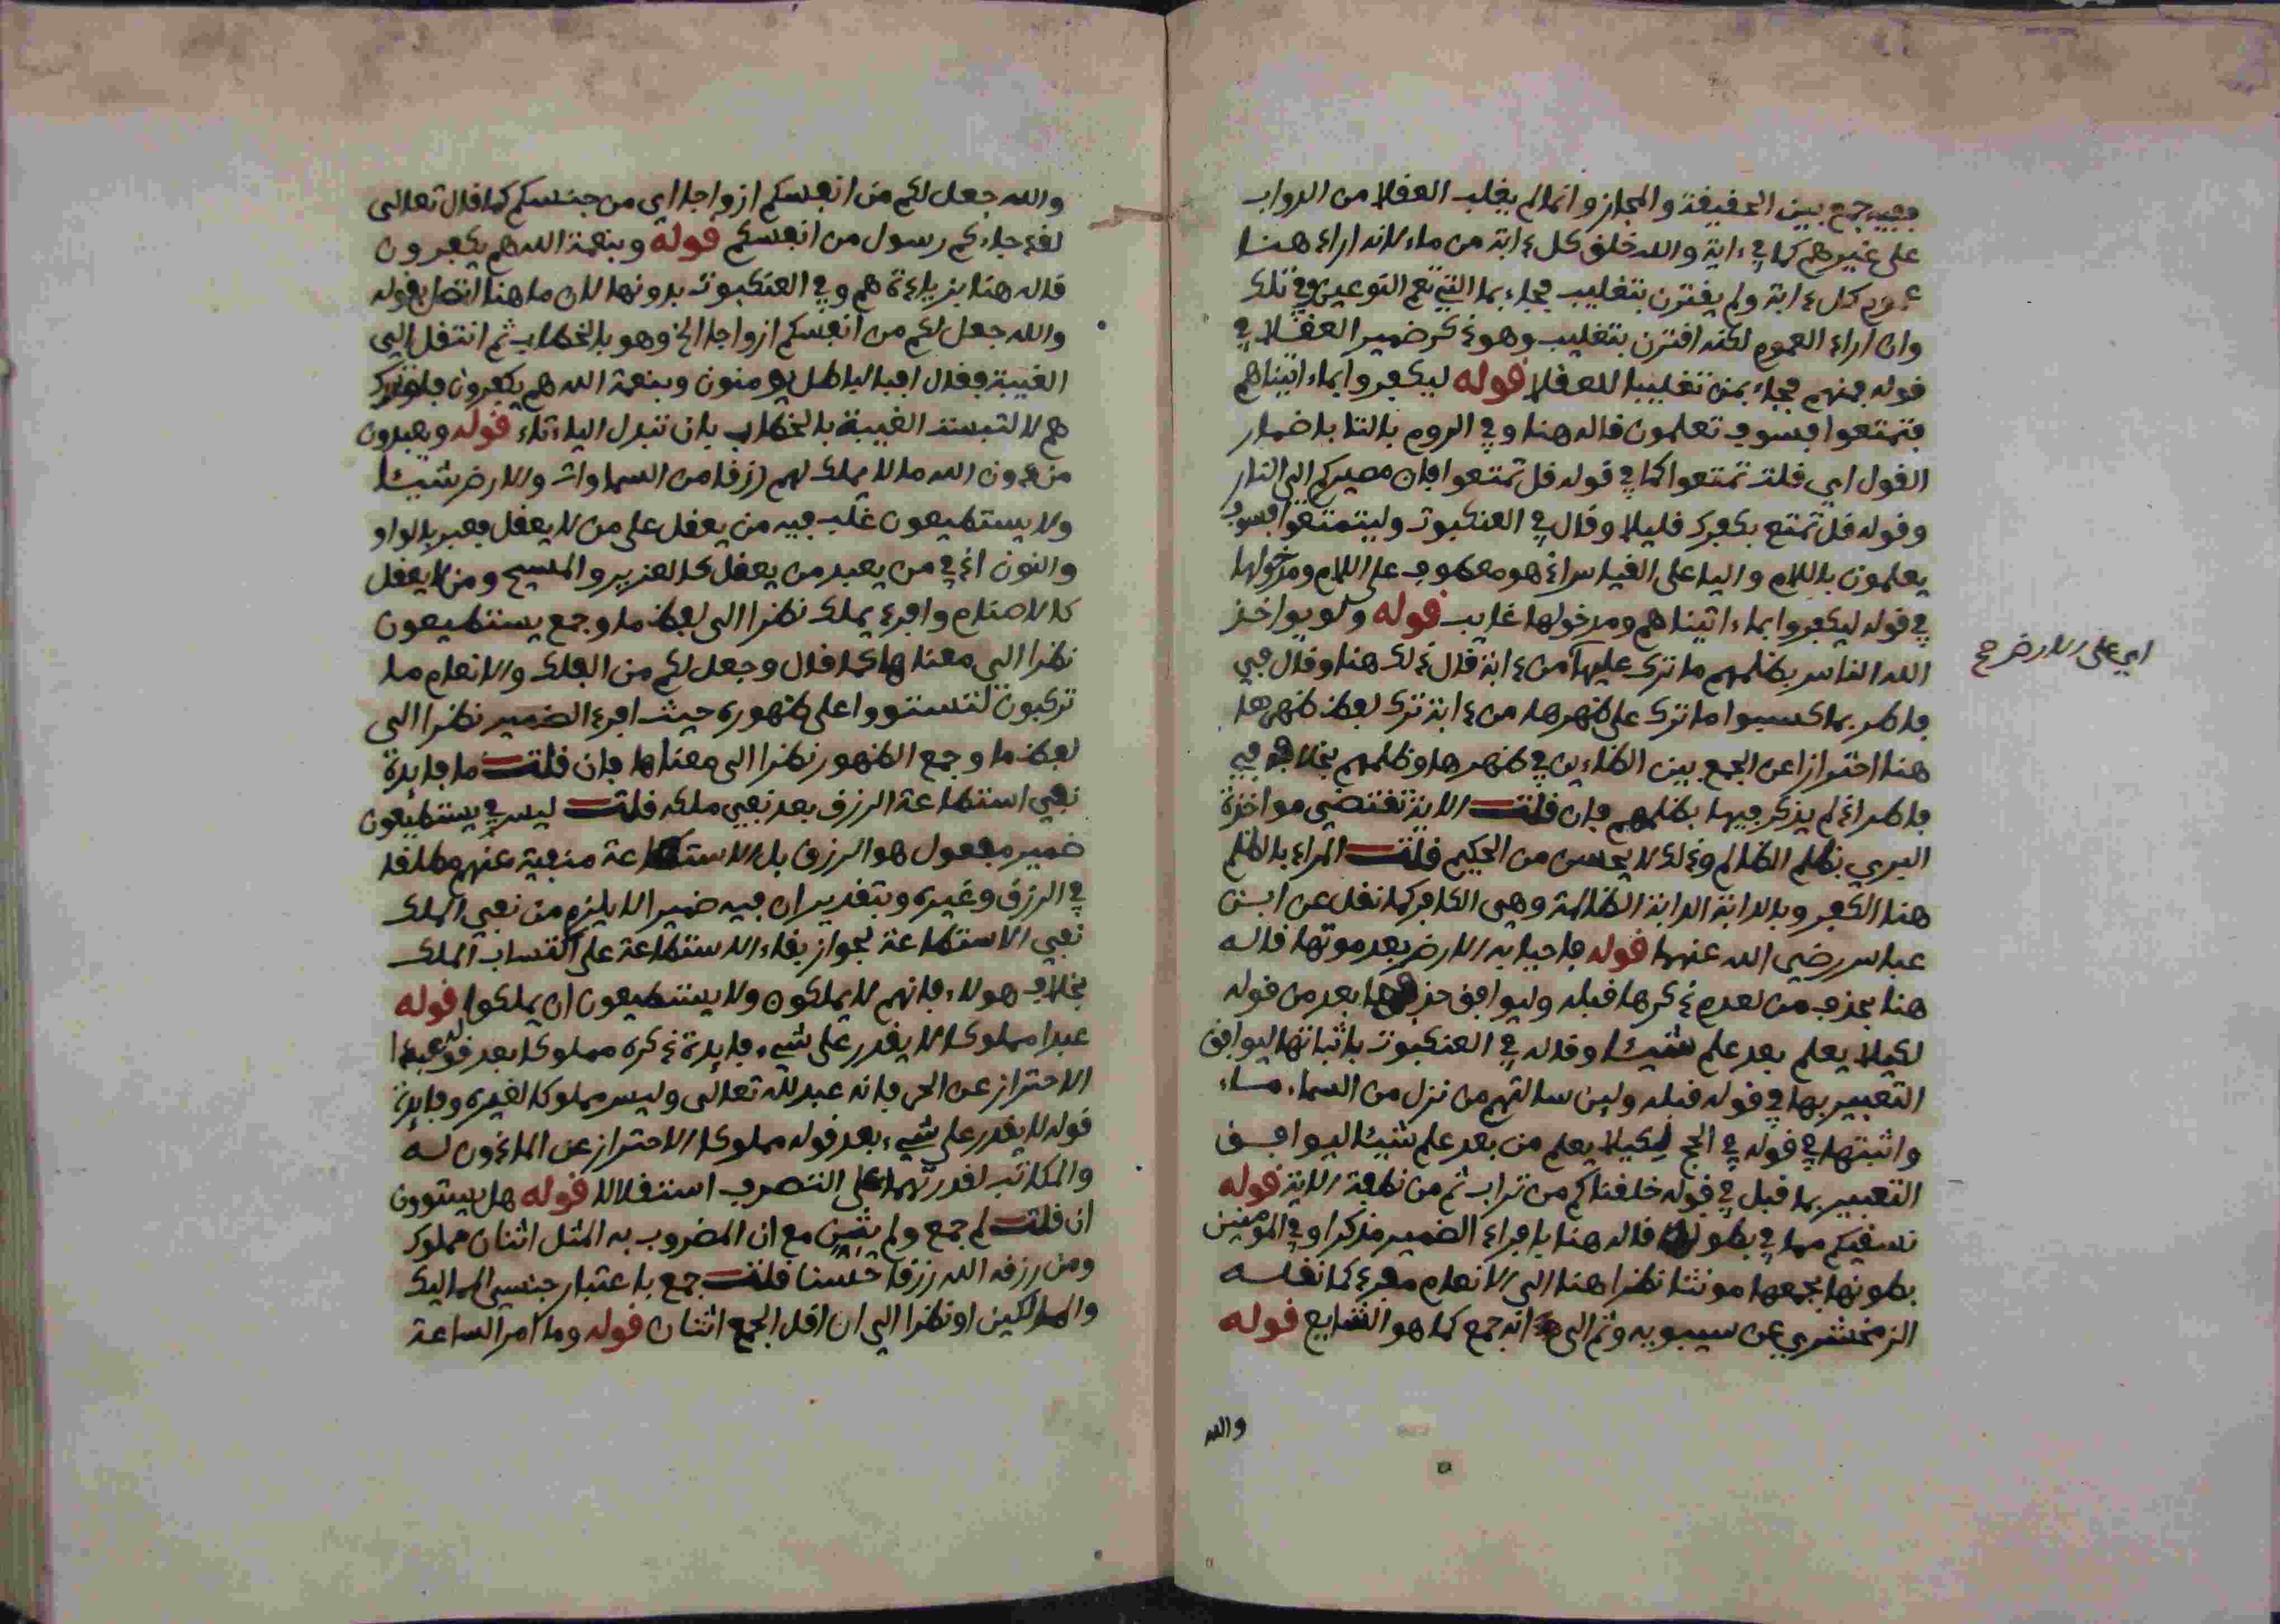 ففيه جمع بين الحقيقة والمجاز وانما لم يغلب العقلا من الدواب
على غيرهم كما في ءاية والله خلق كل دابة من ماء لانه اراد هنا
عموم كل دابة ولم يقترن بتغليب فجاء بما التي تعم النوعين وفي تلك
وان اراد العموم لكنه اقترن بتغليب وهو ذكر ضمير العقلا في
قوله فمنهم فجاء بمن تغليبا للعقلا قوله ليكفروا بماء اتيناهم
فتمتعوا فسوف تعلمون قاله هنا وفي الروم بالتا باضمار
القول اي قلت تمتعوا كما في قوله قل تمتعوا فان مصيركم الى النار
وقوله قل تمتع بكفرك قليلا وقال في العنكبوت وليتمتعوا فسوف
يعلمون باللام واليا على القياس اذ هو معطوف على اللام ومدخولها
في قوله ليكفروا بماء اتيناهم ومدخولها غايب قوله ولو يواخذ
الله الناس بظلمهم ما ترك عليها من دابة قال ذلك هنا وقال في
اي على الارض صح
فاطر بما كسبوا ما ترك على ظهرها من دابة ترك لفظ ظهرها
هنا احترازا عن الجمع بين الظاءين في ظهرها وظلمهم بخلافه في
فاطر اذ لم يذكر فيها بظلمهم فان قلت الاية تقتضي مواخذة
البري بظلم الظالم وذلك لا يحسن من الحكيم قلت المراد بالظلم
هنا الكفر وبالدابة الدابة الظالمة وهي الكافر كما نقل عن ابن
عباس رضي الله عنهما قوله فاحيا به الارض بعد موتها قاله
هنا بحذف من لعدم ذكرها قبله وليوافق حذفها بعد من قوله
لكيلا يعلم بعد علم شيئا وقاله في العنكبوت باثباتها ليوافق
التعبير بها في قوله قبله ولين سالتهم من نزل من السماء ماء
واثبتها في قوله في الحج لكيلا يعلم من بعد علم شيئا ليوافق
التعبير بما قبل في قوله خلقناكم من تراب ثم من نطفة الاية قوله
نسقيكم مما في بطونه قاله هنا بافراد الضمير مذكرا وفي المومنين
بطونها بجمعها مونثا نظرا هنا الى الانعام مفرد كما نقله
الزمخشري عن سيبويه وثم الى انه جمع كما هو الشايع قوله
والله
والله جعل لكم من انفسكم ازواجا اي من جنسكم كما قال تعالى
لقد جاءكم رسول من انفسكم قوله وبنعمة الله هم يكفرون
قاله هنا بزيادة هم وفي العنكبوت بدونها لان ما هنا اتصل بقوله
والله جعل لكم من انفسكم ازواجا الخ وهو بالخطاب ثم انتقل الى
الغيبة فقال افبالباطل يومنون وبنعمة الله هم يكفرون فلو ترك
هم لالتبست الغيبة بالخطاب بان تبدل الياء تاء قوله ويعبدون
من دون الله ما لا يملك لهم رزقا من السماوات والارض شيئا
ولا يستطيعون غلب فيه من يعقل على من لا يعقل فعبر بالواو
والنون اذ في من يعبد من يعقل كالعزير والمسيح ومن لا يعقل
كالاصنام وافرد يملك نظرا الى لفظ ما وجمع يستطيعون
نظرا الى معناها كما قال وجعل لكم من الفلك والانعام ما
تركبون لتستووا على ظهوره حيث افرد الضمير نظرا الى
لفظ ما وجمع الظهور نظرا الى معناها فان قلت ما فايدة
نفي استطاعة الرزق بعد نفي ملكه قلت ليس في يستطيعون
ضمير مفعول هو الرزق بل الاستطاعة منفية عنهم مطلقا
في الرزق وغيره وبتقدير ان فيه ضميرا لا يلزم من نفي الملك
نفي الاستطاعة لجواز بقاء الاستطاعة على اكتساب الملك
بخلاف هولاء فانهم لا يملكون ولا يستطيعون ان يملكوا قوله
عبدا مملوكا لا يقدر على شيء فايدة ذكره مملوكا بعد قوله عبدا
الاحتراز عن الحر فانه عبد لله تعالى وليس مملوكا لغيره وفايدة
قوله لا يقدر على شيء بعد قوله مملوكا الاحتراز عن الماذون له
والمكاتب لقدرتهما على التصرف استقلالا قوله هل يستوون
ان قلت لم جمع ولم يثن مع ان المضروب به المثل اثنان مملوك
ومن رزقه الله رزقا حسنا قلت جمع باعتبار جنسي المماليك
والمالكين او نظرا الى ان اقل الجمع اثنان قوله وما امر الساعة